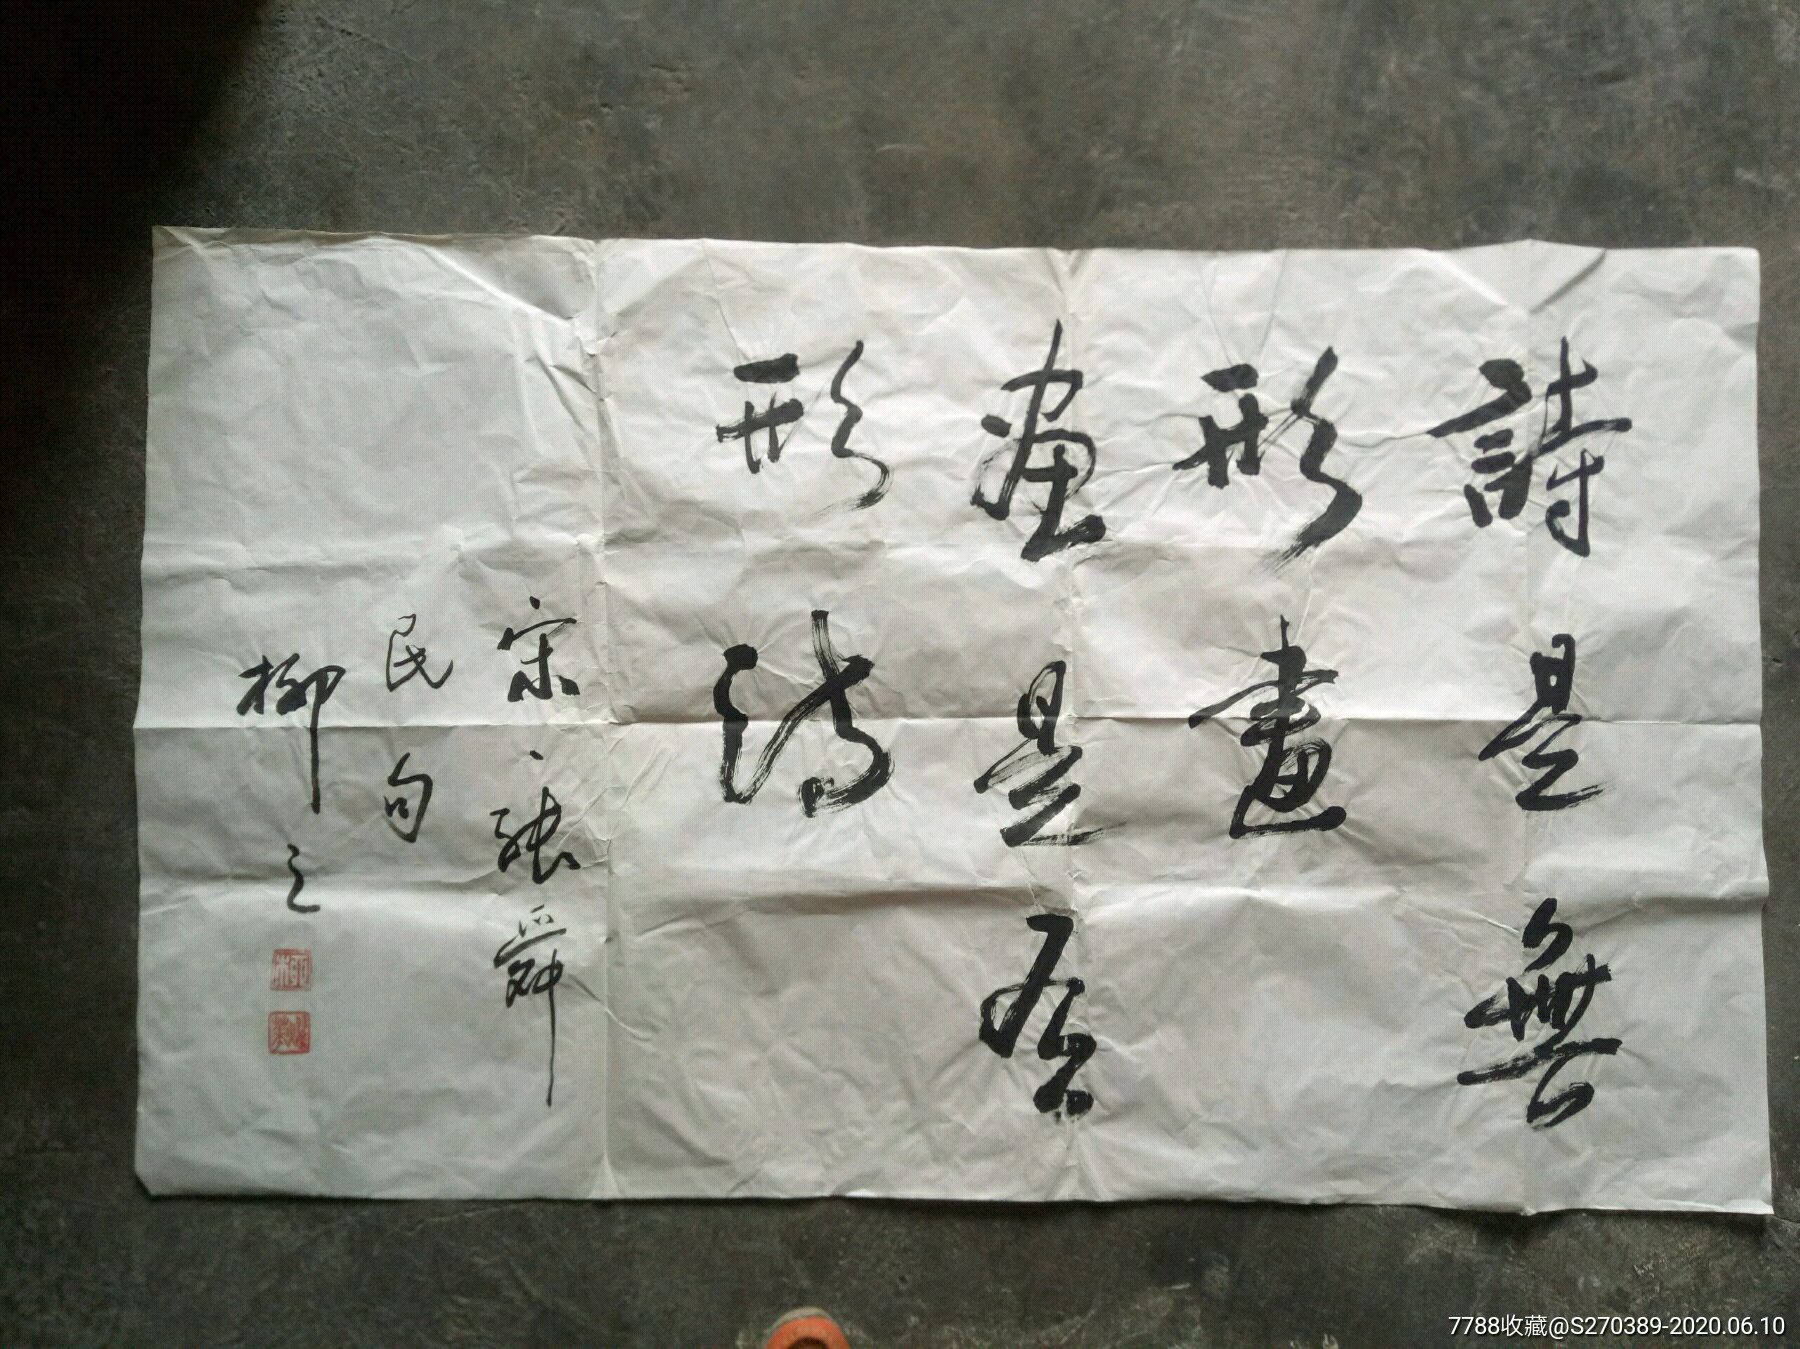 詩是無
形畫
画是有
形诗
宋、张舜
民句
柳之
7788收藏@S270389-2020.06.10